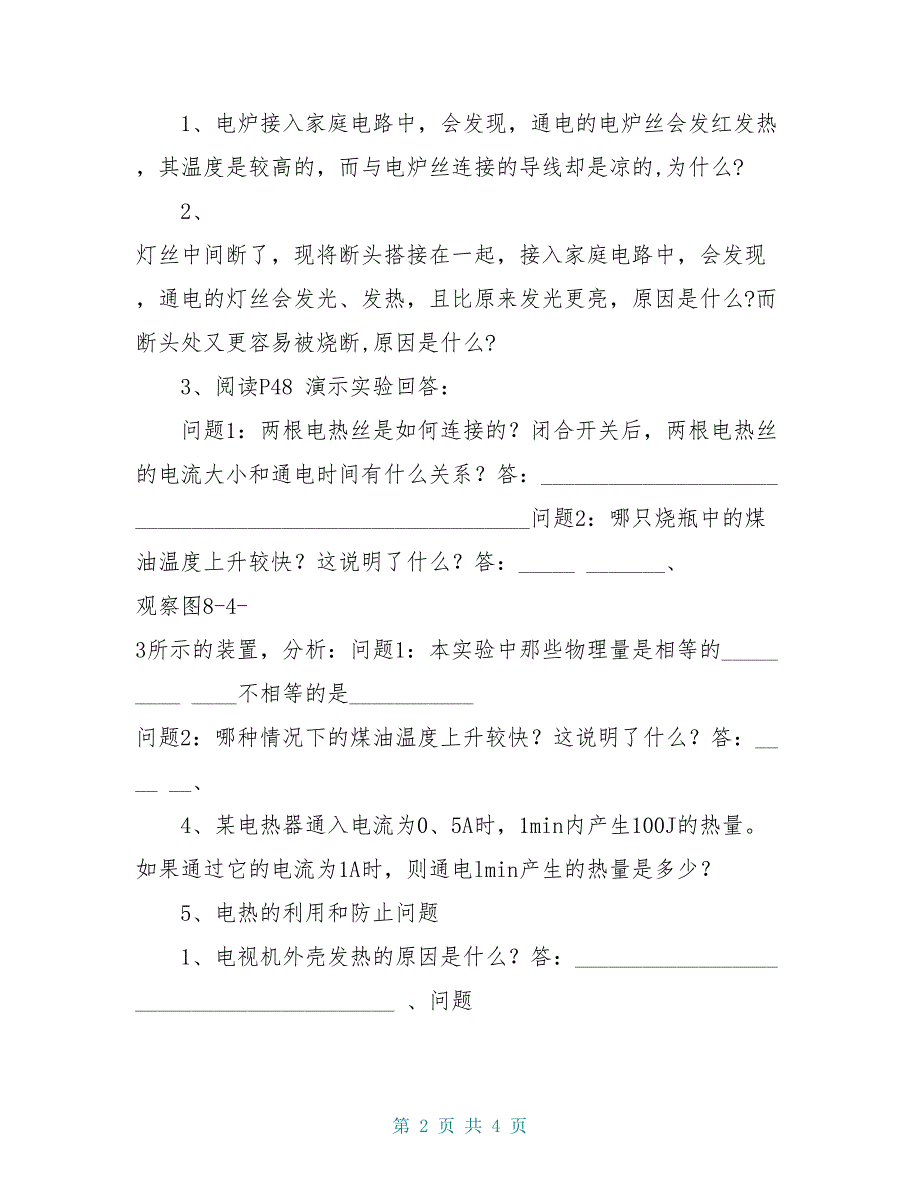 1、电炉接入家庭电路中，会发现，通电的电炉丝会发红发热
，其温度是较高的，而与电炉丝连接的导线却是凉的,为什么?
2、
灯丝中间断了，现将断头搭接在一起，接入家庭电路中，会发现
，通电的灯丝会发光、发热，且比原来发光更亮，原因是什么?而
断头处又更容易被烧断,原因是什么?
3、阅读P48 演示实验回答：
问题1：两根电热丝是如何连接的？闭合开关后，两根电热丝
的电流大小和通电时间有什么关系？答：_____________________
___________________________________问题2：哪只烧瓶中的煤
油温度上升较快？这说明了什么？答：_____ _______、
观察图8-4-
3所示的装置，分析：问题1：本实验中那些物理量是相等的_____
____ ____不相等的是___________
问题2：哪种情况下的煤油温度上升较快？这说明了什么？答：__
__ __、
4、某电热器通入电流为0、5A时，1min内产生100J的热量。
如果通过它的电流为1A时，则通电lmin产生的热量是多少？
5、电热的利用和防止问题
1、电视机外壳发热的原因是什么？答：__________________
_______________________ 、问题
第 2 页 共 4 页